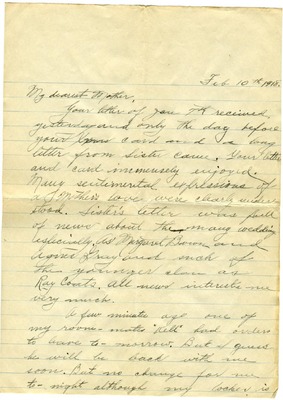 Feb. 10th 1918.
My dearest Mother,
Your letter of Jan 7th received
yesterday and only the day before
your card and a long
letter from Sister came. Your letter
and card immensely enjoyed.
Many sentimental expressions of
a Mother's love were clearly under-
stood. Sister's letter was full
of news about the many weddings
especially, as Margaret Bowen and
Gray and such of
the younger clan as
Ray Coats. All news interests me
very much.
A few minutes ago one of
my room-mates "Kell" had orders
to leave to-morrow. But I guess
he will be back with me
soon. But no change for me
to-night although my locker is